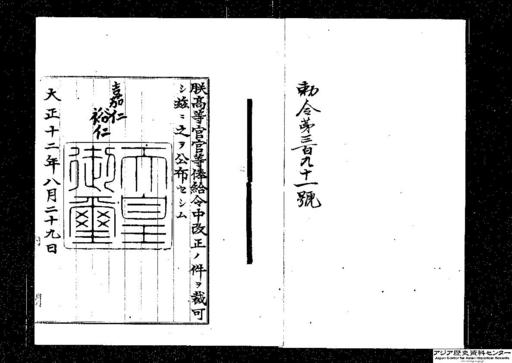 勅令第三百九十一號
朕高等官官等俸給令中改正ノ件ヲ裁可
シ玆ニ之ヲ公布セシム
嘉仁
裕仁
天皇
御璽
大正十二年八月二十九日
アジア歴史資料センター
Japan Center for Asian Historical Records